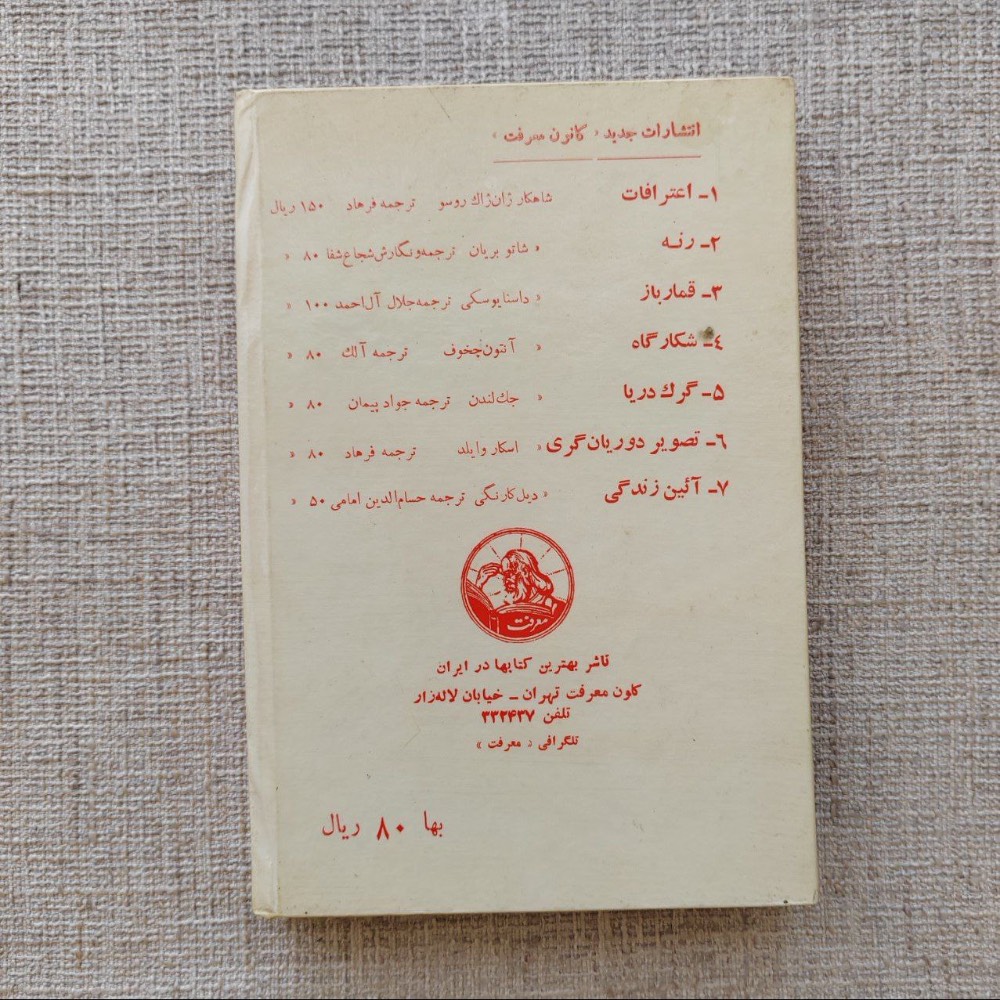 انتشارات جدید « کانون معرفت »
۱ـ اعترافات شاهکار ژان‌ژاک روسو ترجمه فرهاد ۱۵۰ ریال
۲ـ رنه « شاتو بریان ترجمه‌ونگارش‌شجاع‌شفا ۸۰ «
۳ـ قمارباز « داستایوسکی ترجمه جلال آل‌احمد ۱۰۰ «
۴ـ شکارگاه « آنتون‌چخوف ترجمه آلك ۸۰ «
۵ـ گرك دریا « جك‌لندن ترجمه جواد پیمان ۸۰ «
۶ـ تصویر دوریان‌گری « اسکار وایلد ترجمه فرهاد ۸۰ «
۷ـ آئین زندگی « دیل‌کارنگی ترجمه حسام‌الدین امامی ۵۰ «
معرفت
ناشر بهترین کتابها در ایران
کانون معرفت تهران ـ خیابان لاله‌زار
تلفن ۳۳۲۴۳۷
تلگرافی « معرفت »
بها ۸۰ ریال